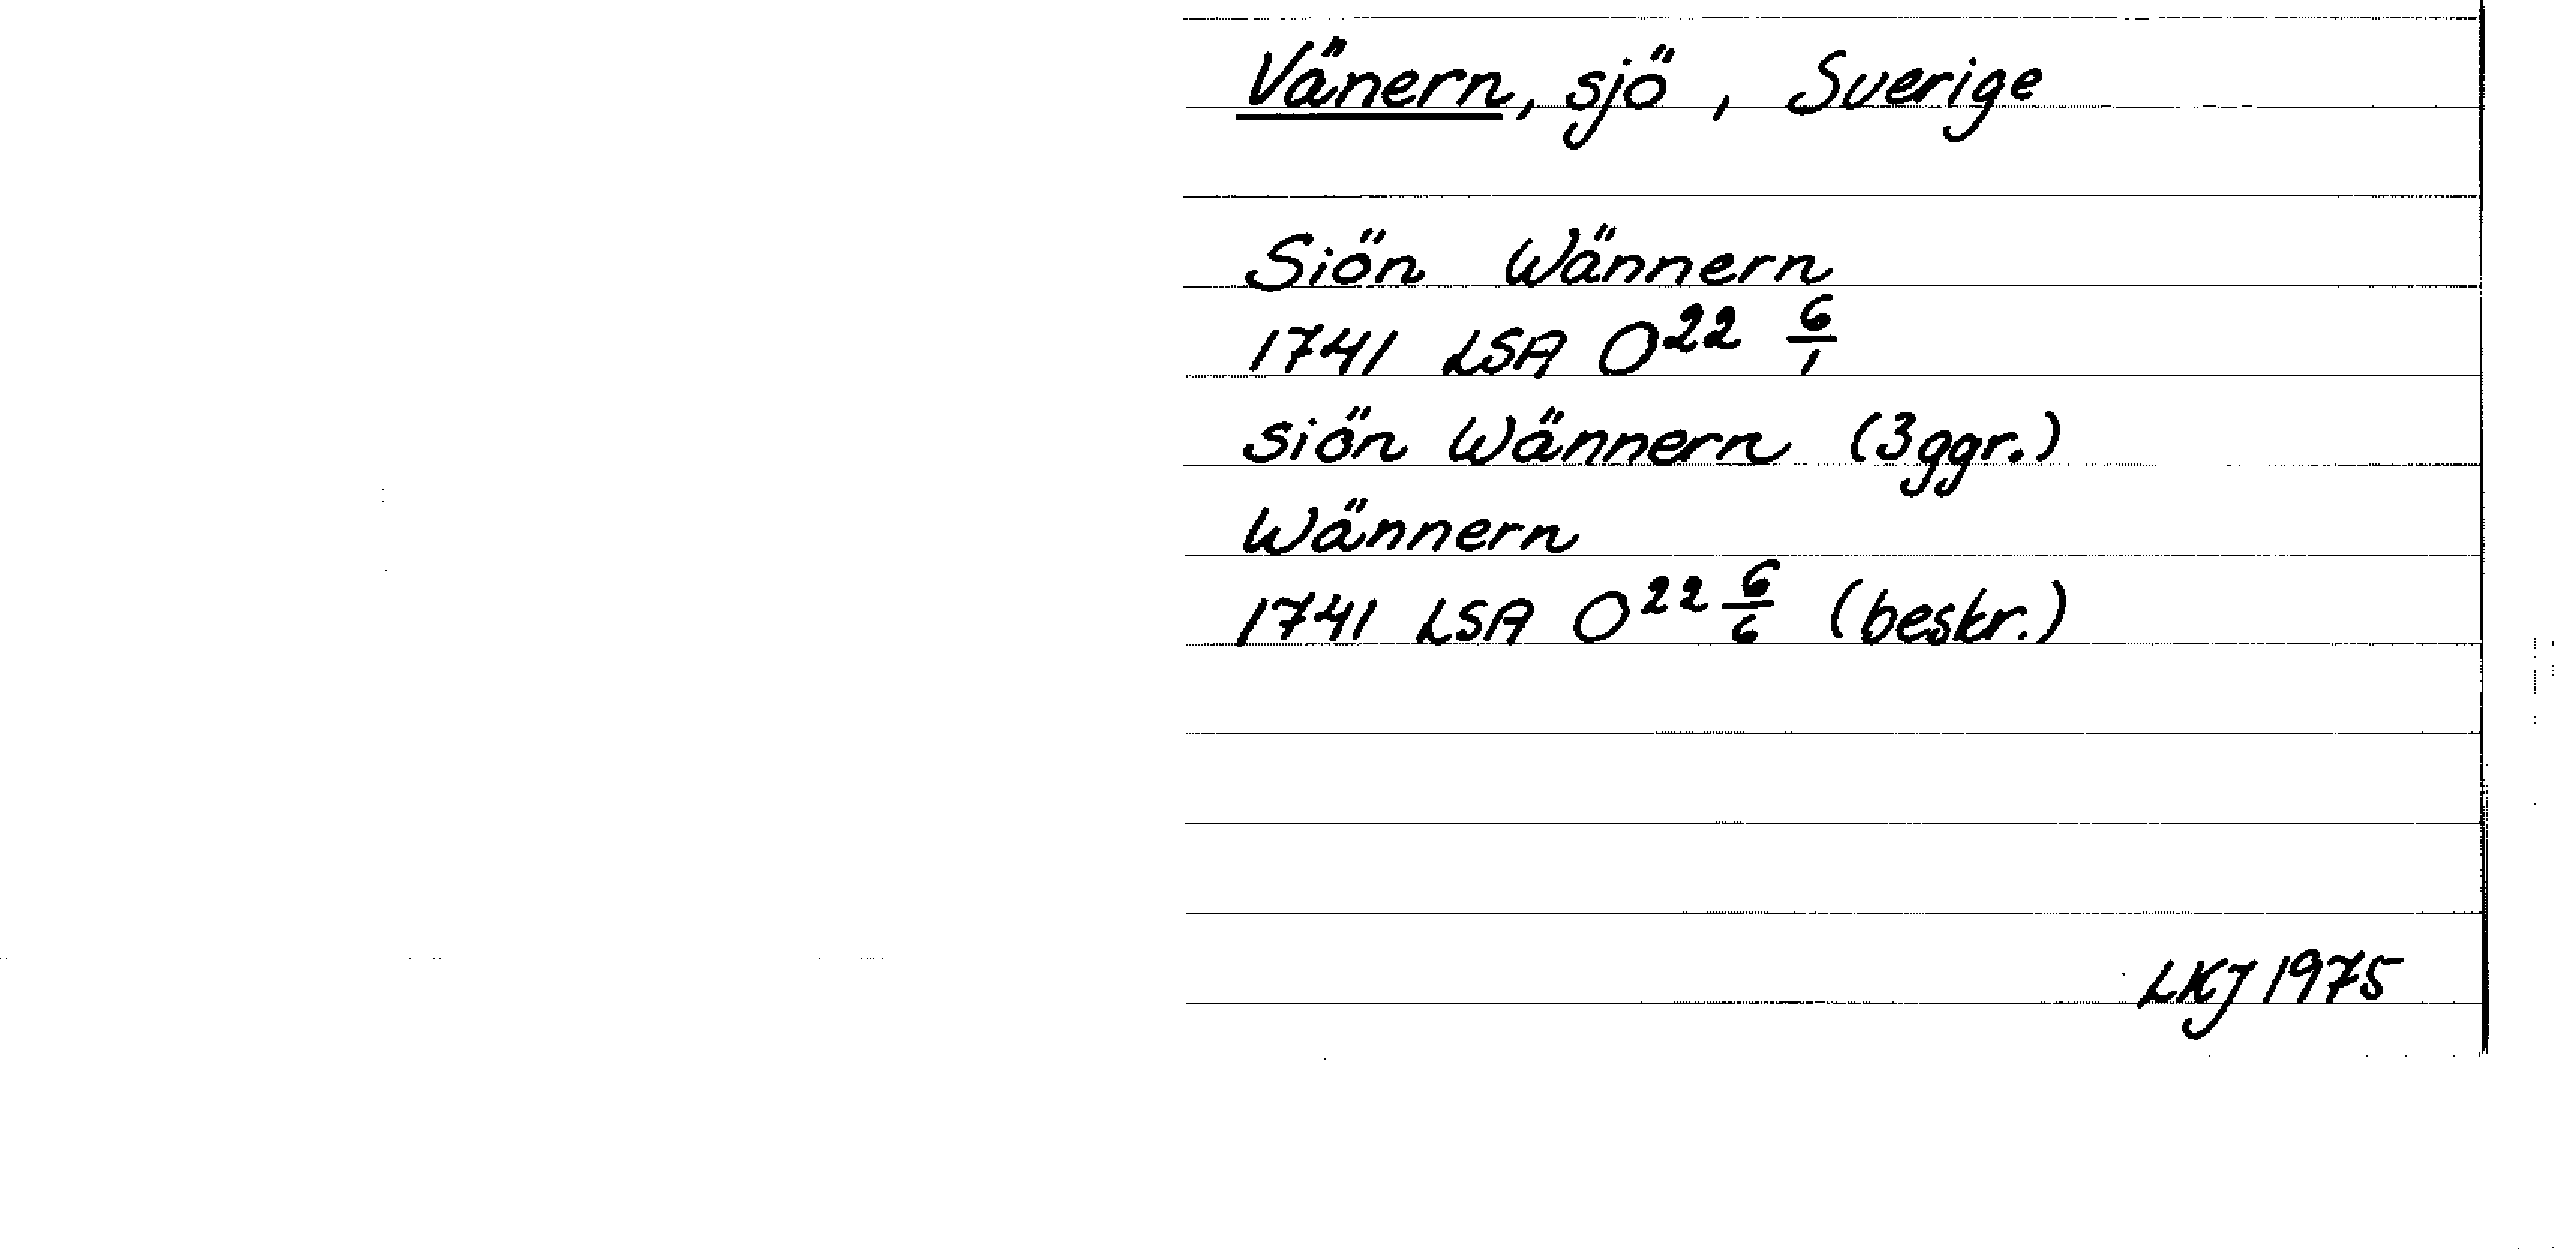 Vänern, sjö, Sverige
Siön Wännern
1741 LSA O²² 6/1
siön Wännern (3ggr.)
Wännern
1741 LSA O²² 6/6 (beskr.)
LKJ 1975